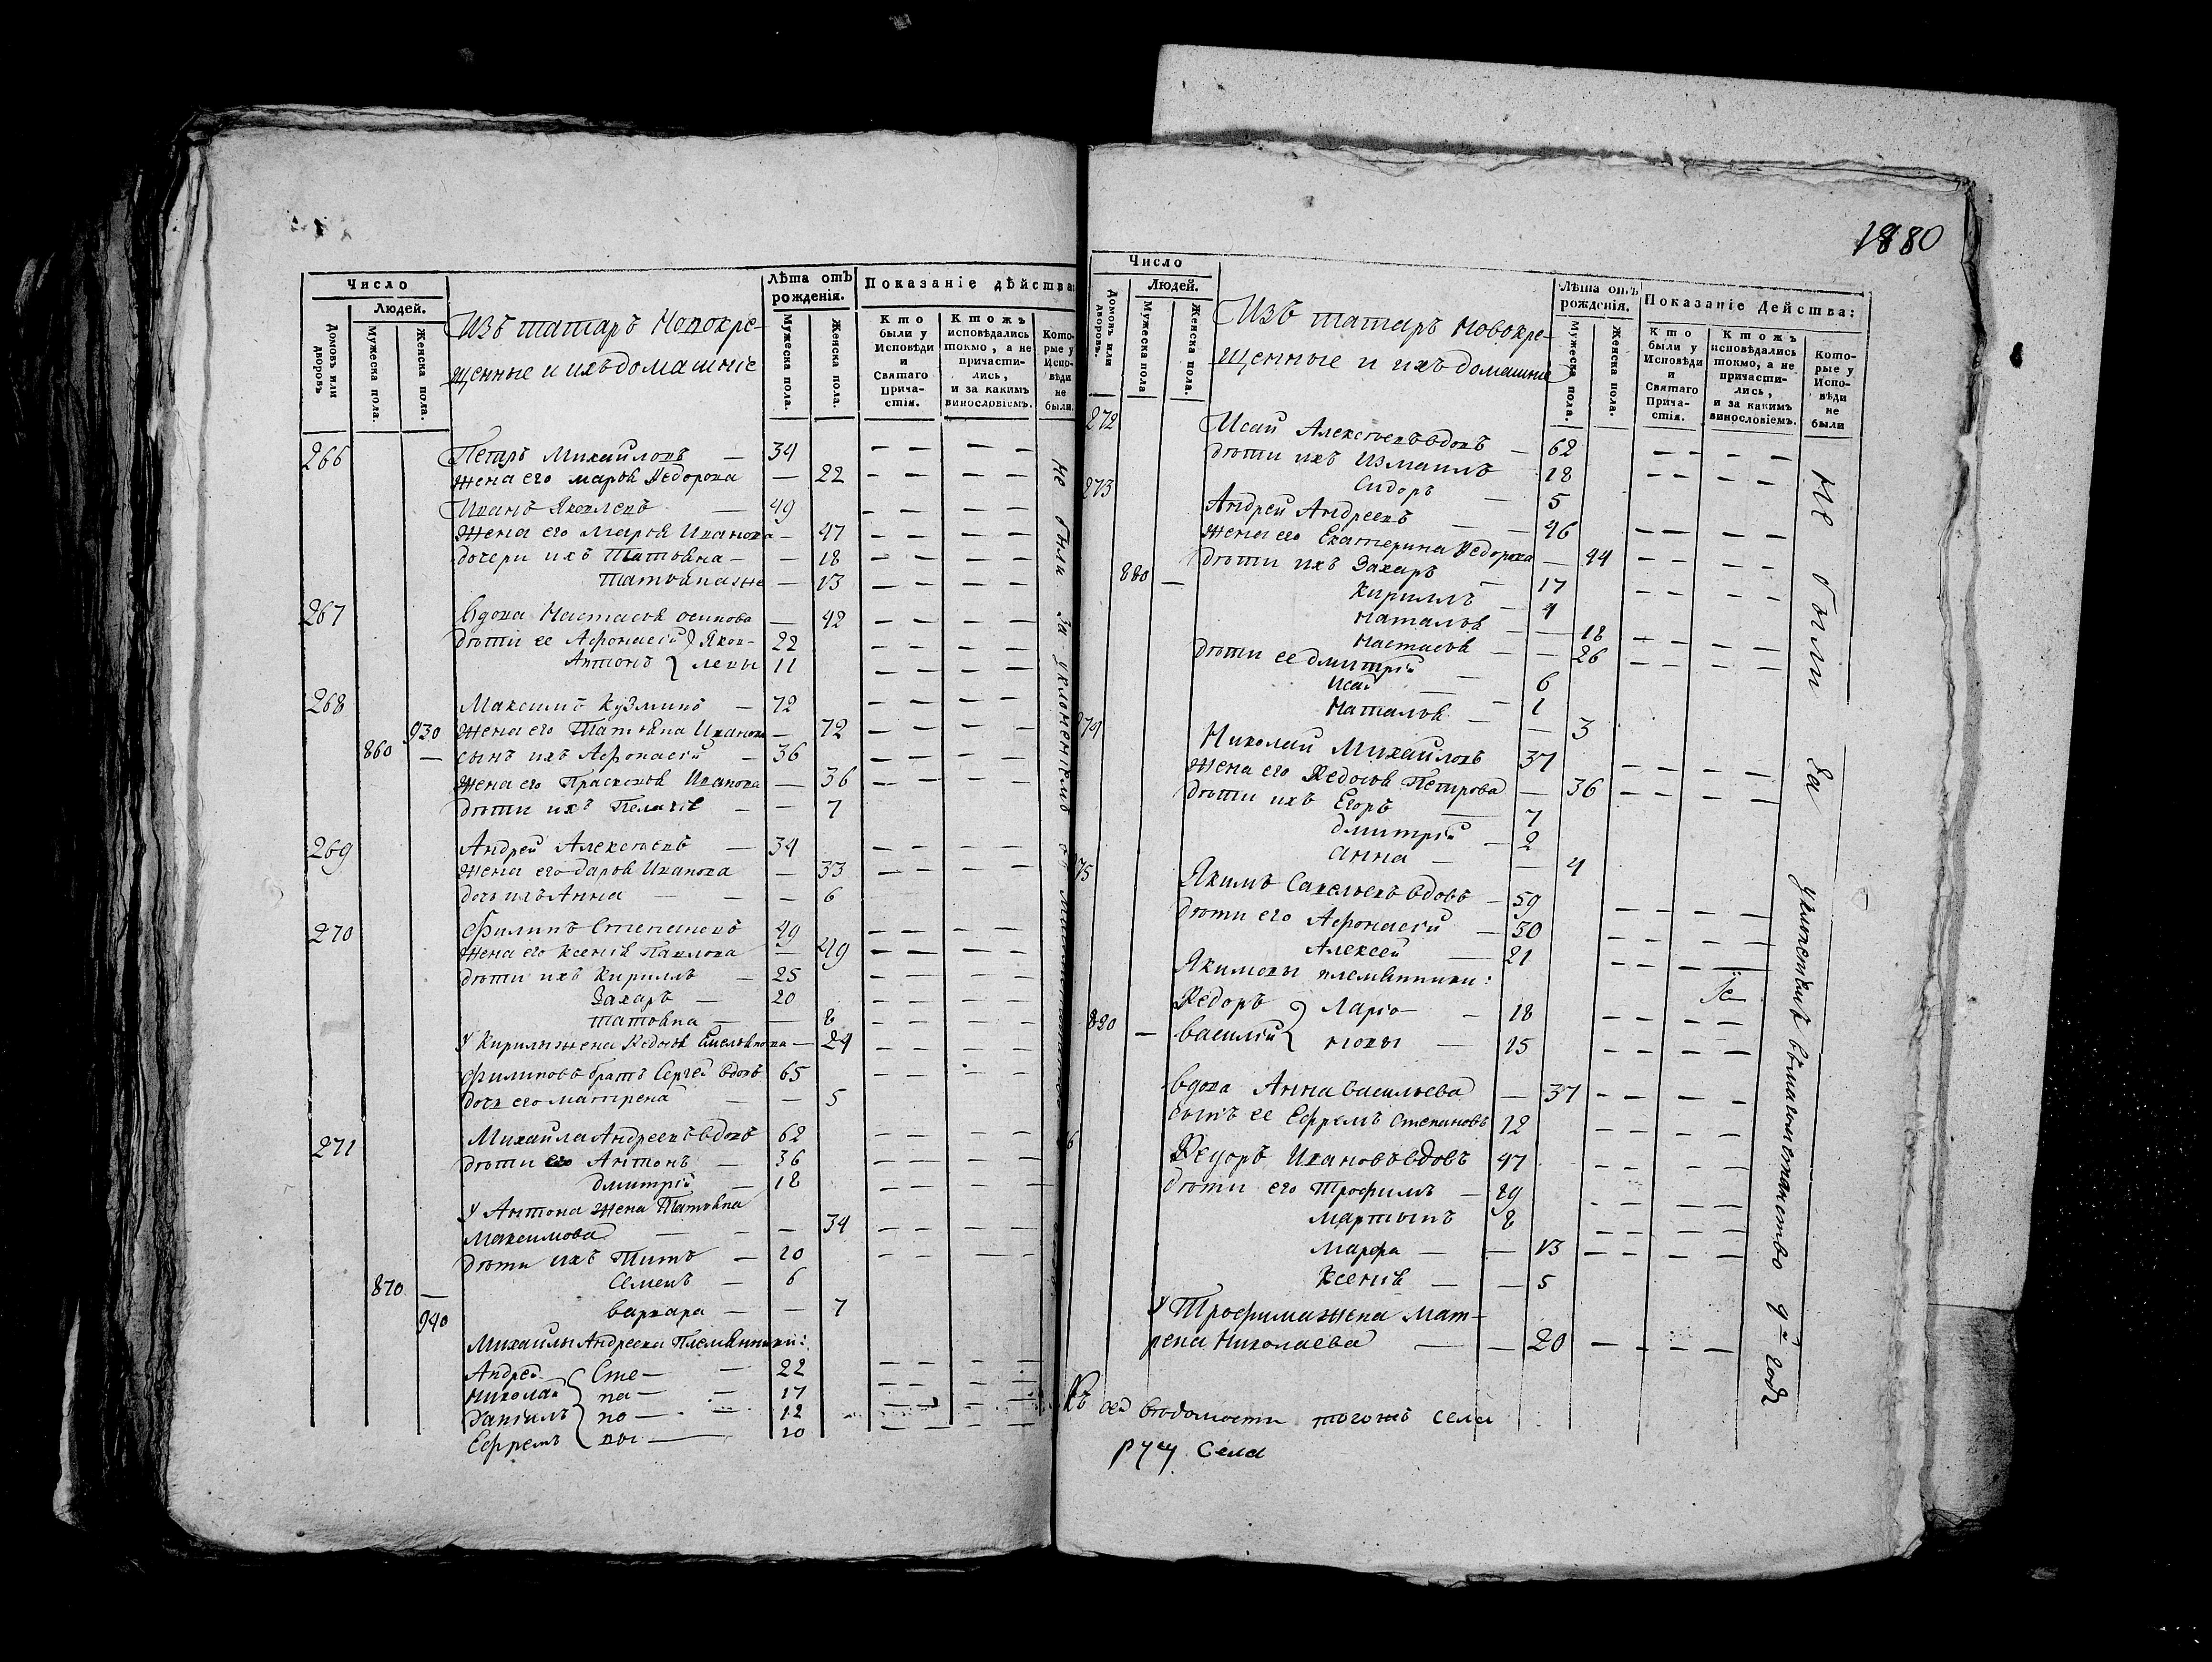 Число
Людей.
Домовъ или дворовъ
Мужеска пола.
Женска пола.
Изъ татаръ Новокре-
щенные и ихъ домашніе
Лѣта отъ рожденія.
Мужеска пола.
Женска пола.
Показаніе дѣйства:
Кто были у Исповѣди и Святаго Прича-стія.
Ктожъ исповѣдались токмо, а не причасти-лись, и за какимъ винословіемъ.
Кото-рые у Испо-вѣди не были.
266 Петръ Михайловъ — 34
жена его марья Ѳедорова — 22
Иванъ Яковлевъ — 49
жена его Марья Иванова — 47
дочери ихъ Татьяна — — 18
Татьяна же — 13
267 Вдова Настасья осипова — 42
дѣти ее Афонасій } Яков- 22
Антонъ } левы 11
268 Максимъ Кузминъ — 72
930 жена его Татьяна Иванова — 72
860 — сынъ ихъ Афонасій — 36
жена его Прасковья Иванова — 36
дѣти ихъ Пелагія — — 7
269 Андрей Алексѣевъ — 34
жена его дарья Иванова — 33
дочь ихъ Анна — — — 6
270 Филипъ Степановъ 49
жена его Ксенія Павлова — 49
дѣти ихъ Кирилъ — 25
Захаръ — 20
татьяна — — 8
У Кирилы жена Ѳедосья Емельянова — 24
Филиповъ братъ Сергей вдовъ 65
дочь его матрена — — 5
271 Михайла Андреевъ вдовъ 62
дѣти его Антонъ — 36
дмитрій — 18
У Антона жена Татьяна
Максимова — — — 34
дѣти ихъ Титъ — 10
870 — Семенъ — 6
940 варвара — — 7
Михайлы Андреева Племянники:
Андрей { Сте — — 22
Николай { па — — 17
Даніилъ { но — — 12
Ефремъ { вы — 10
Не были за уклоненіемъ
1880
Число
Людей.
Домовъ или дворовъ.
Мужеска пола
Женска пола.
Изъ татаръ Новокре-
щенные и ихъ домашніе
Лѣта отъ рожденія.
Мужеска пола.
Женска пола.
Показаніе Действа:
Кто были у Исповѣди и Святаго Прича-стія.
Ктожъ исповѣдались токмо, а не причасти-лись, и за какимъ винословіемъ.
Кото-рые у Испо-вѣди не были
272 Исай Алексѣевъ вдовъ — 62
дѣти ихъ Измаилъ 18
Сидоръ — 5
273 Андрей Андреевъ — — 46
жена его Екатерина Ѳедорова — 44
880 — дѣти ихъ Захаръ — 17
Кирилъ — 4
Наталья — — 18
Настасья — — 26
дѣти ее дмитрій — 6
Исай — — 1
Наталья — — 3
274 Николай Михайловъ 37
жена его Ѳедосья Петрова — 36
дѣти ихъ Егоръ — 7
дмитрій — 2
анна — — 4
275 Якимъ Савельевъ вдовъ — 59
дѣти его Афонасій — 30
Алексей — 21
Якимовы племянники:
Ѳедоръ } Ларіо- — 18
890 — василій } новы — 15
Вдова Анна васильева — 37
сынъ ее Ефремъ Степановъ 12
Ѳедоръ Ивановъ вдовъ 47
дѣти его Трофимъ — 19
Мартынъ 8
Марфа — — 13
Ксенія — — 5
У Трофима жена Мат-
рена Николаева — — 20
Не были за
Къ сей вѣдомости тогожъ села
руку. Села